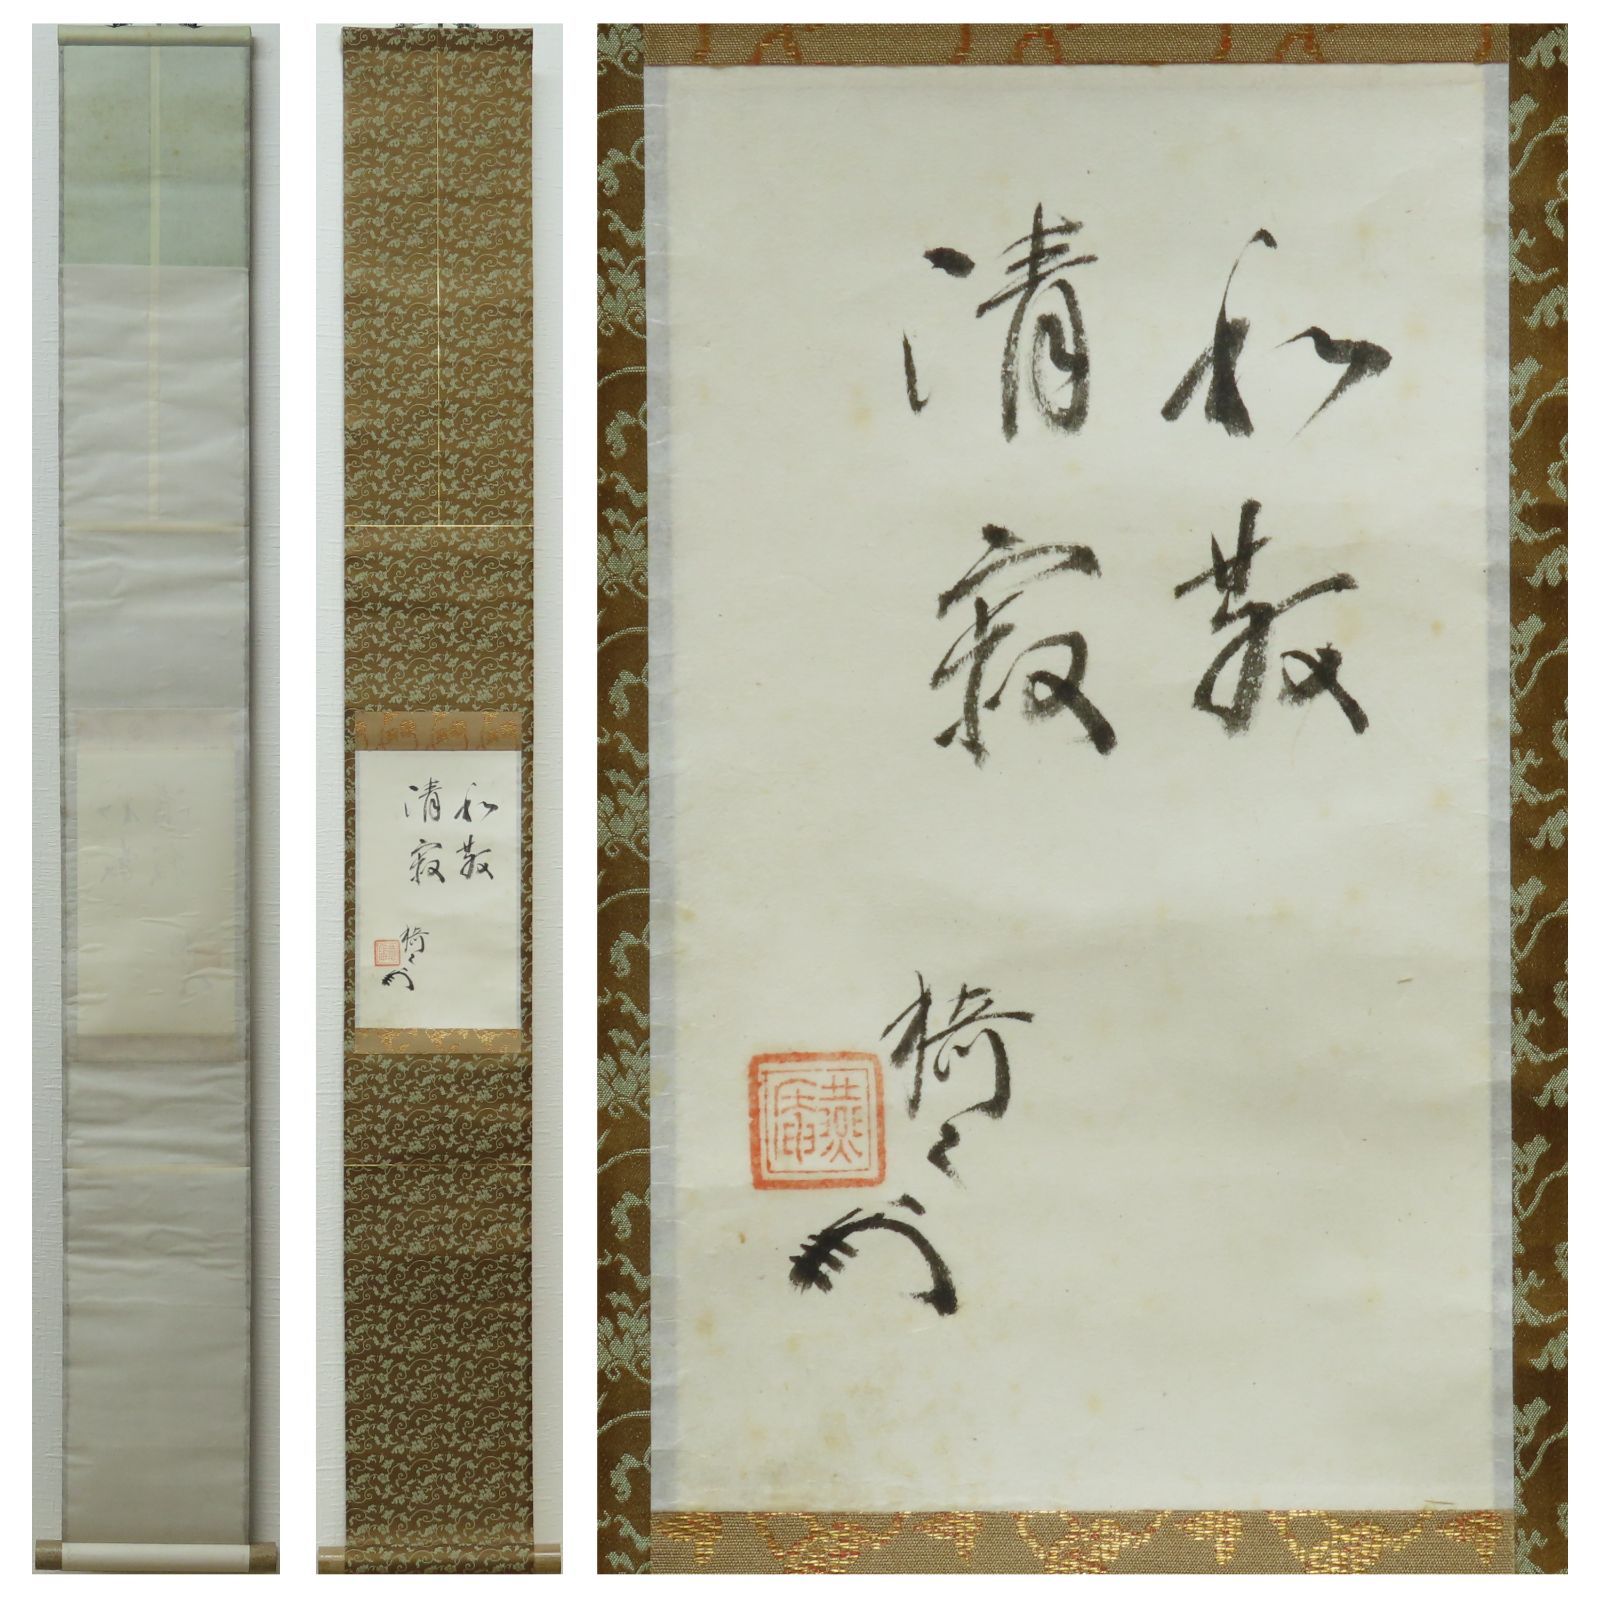 和敬
清寂
椅々